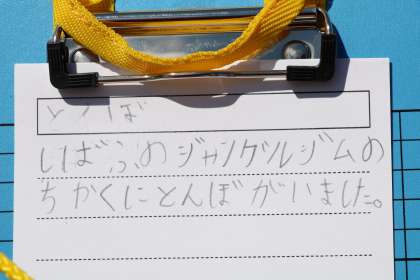 とんぼ
いばふのジャングルジムの
ちかくにとんぼがいました。